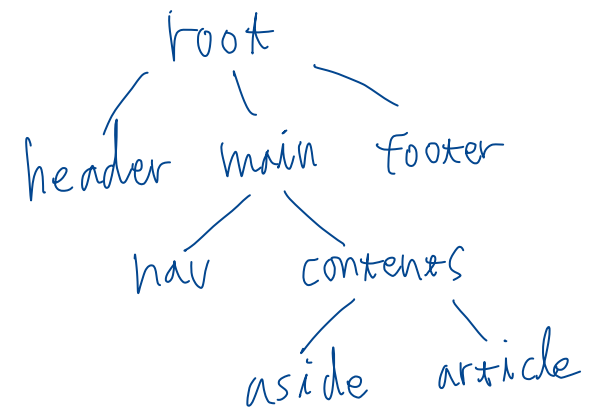 root
header main footer
nav contents
aside article